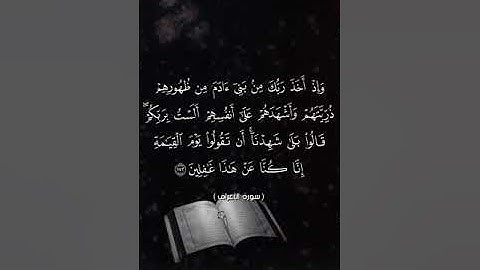 وَإِذْ أَخَذَ رَبُّكَ مِنۢ بَنِىٓ ءَادَمَ مِن ظُهُورِهِمْ
ذُرِّيَّتَهُمْ وَأَشْهَدَهُمْ عَلَىٰٓ أَنفُسِهِمْ أَلَسْتُ بِرَبِّكُمْ ۖ
قَالُوا۟ بَلَىٰ شَهِدْنَآ ۛ أَن تَقُولُوا۟ يَوْمَ ٱلْقِيَـٰمَةِ
إِنَّا كُنَّا عَنْ هَـٰذَا غَـٰفِلِينَ ١٧٢
( سورة الاعراف )